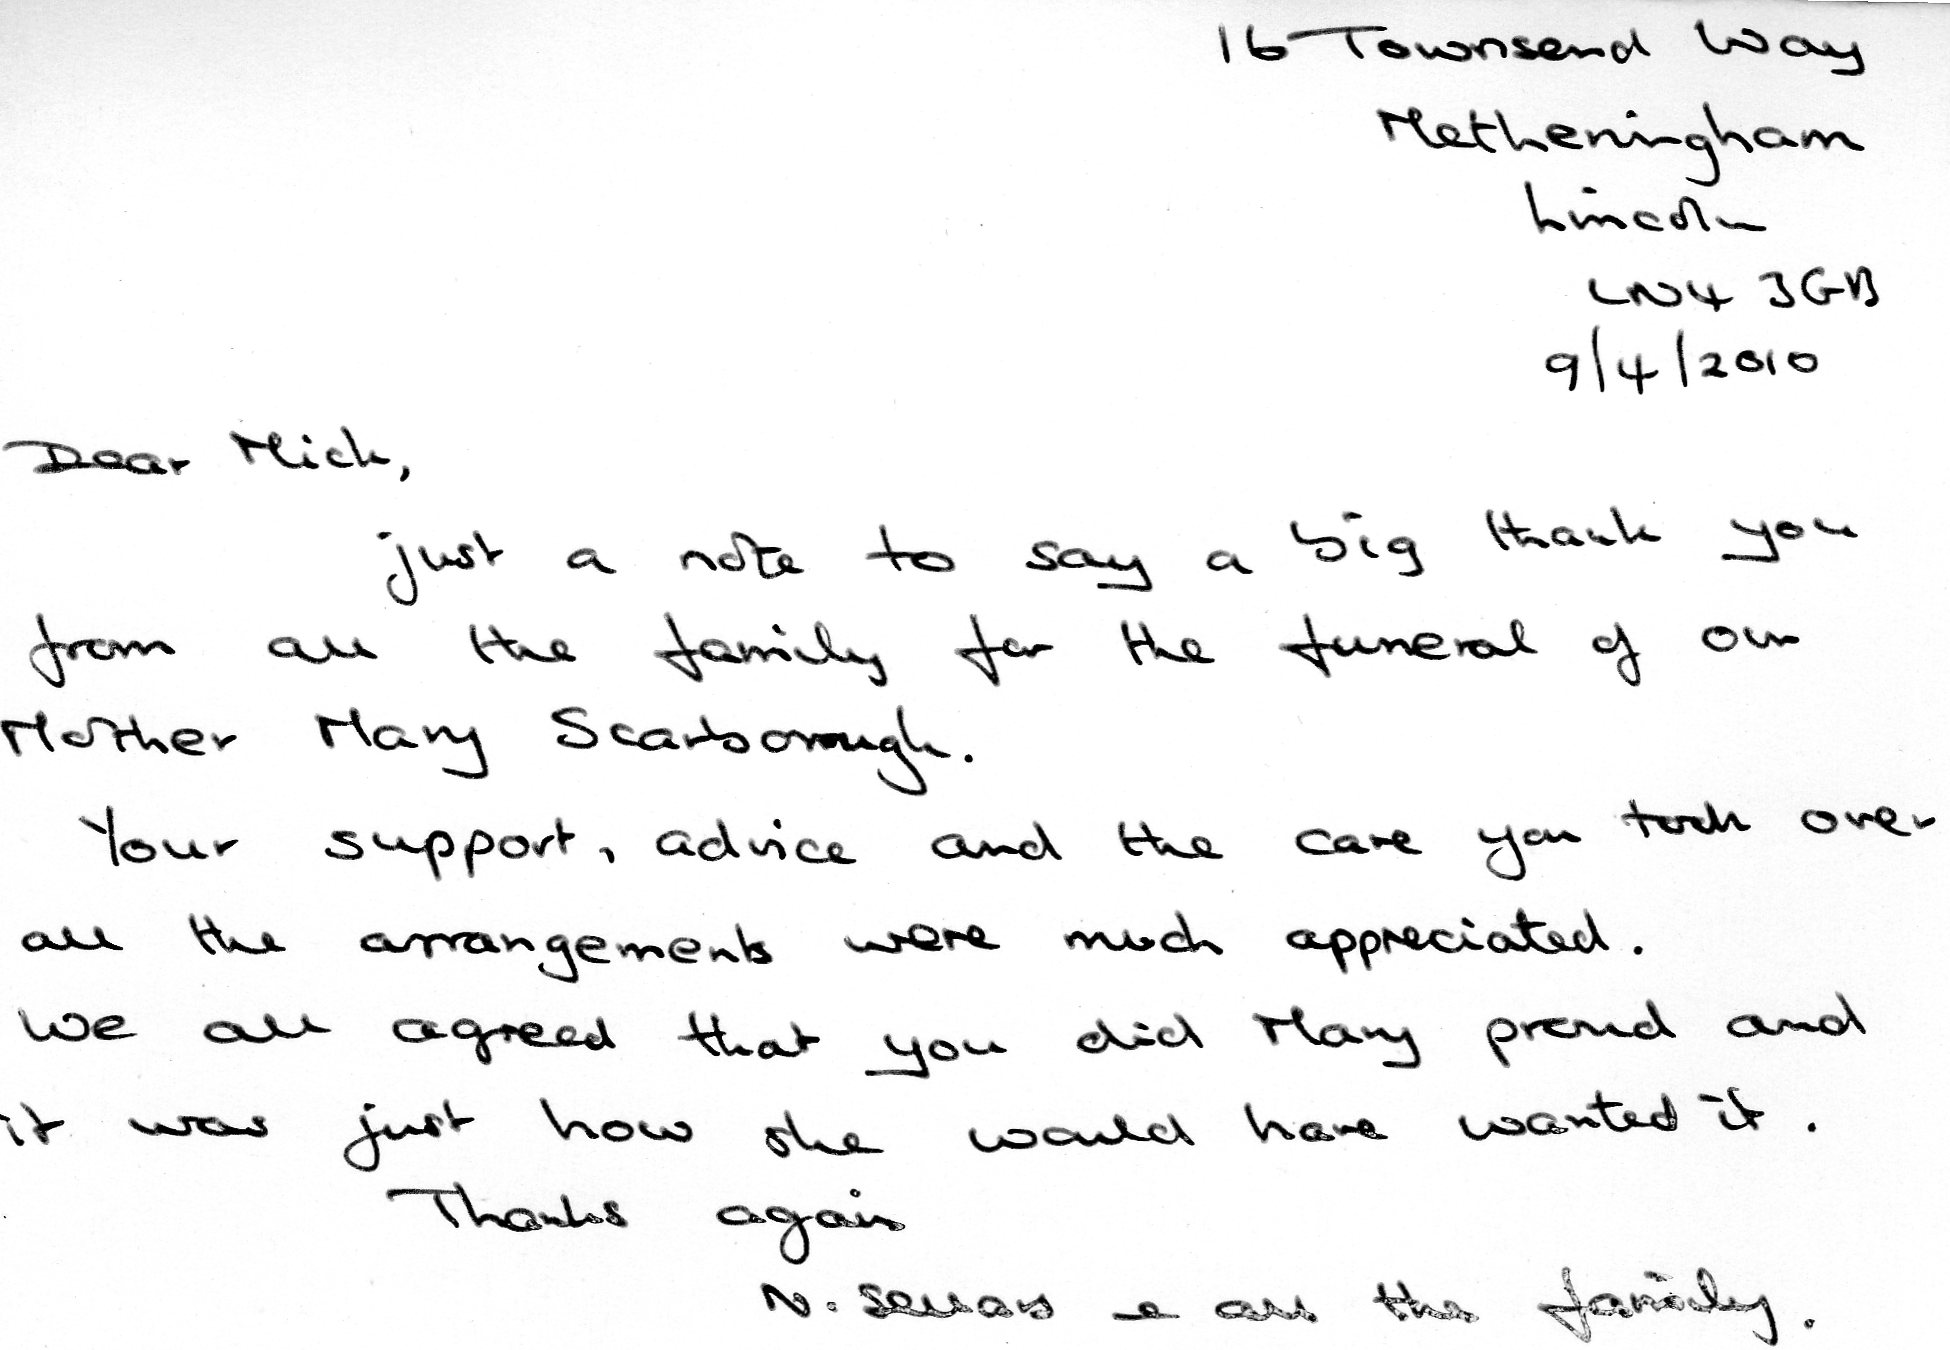 16 Townsend Way
Metheringham
Lincoln
LN4 3GB
9/4/2010
Dear Mick,
just a note to say a big thank you
from all the family for the funeral of our
Mother Mary Scarborough.
Your support, advice and the care you took over
all the arrangements were much appreciated.
We all agreed that you did Mary proud and
it was just how she would have wanted it.
Thanks again
N. Sellars & all the family.